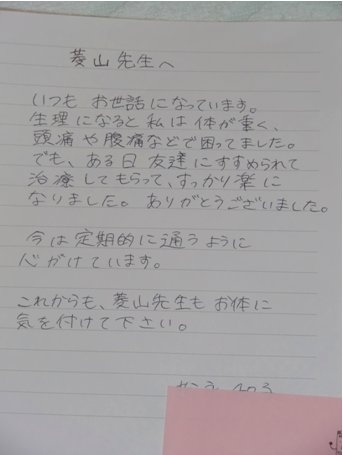 菱山先生へ
いつも お世話になっています。
生理になると 私は 体が重く、
頭痛や腹痛などで困ってました。
でも、ある日 友達にすすめられて
治療してもらって、すっかり楽に
なりました。ありがとうございました。
今は定期的に通うように
心がけています。
これからも、菱山先生も お体に
気を付けて下さい。